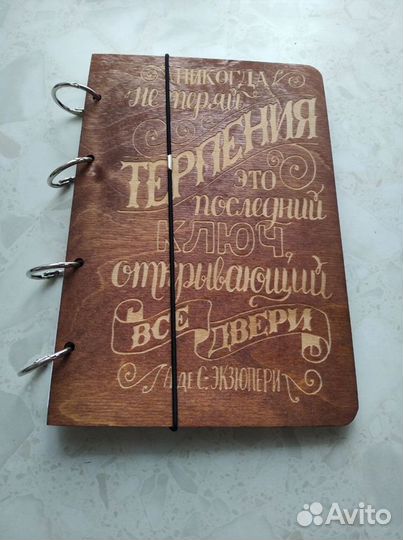 НИКОГДА
не теряй
ТЕРПЕНИЯ
это
последний
КЛЮЧ,
открывающий
ВСЕ ДВЕРИ
А де С. ЭКЗЮПЕРИ
Avito